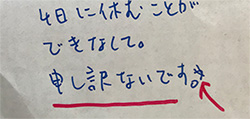 4日に休むことが
できなして。
申し訳ないです。